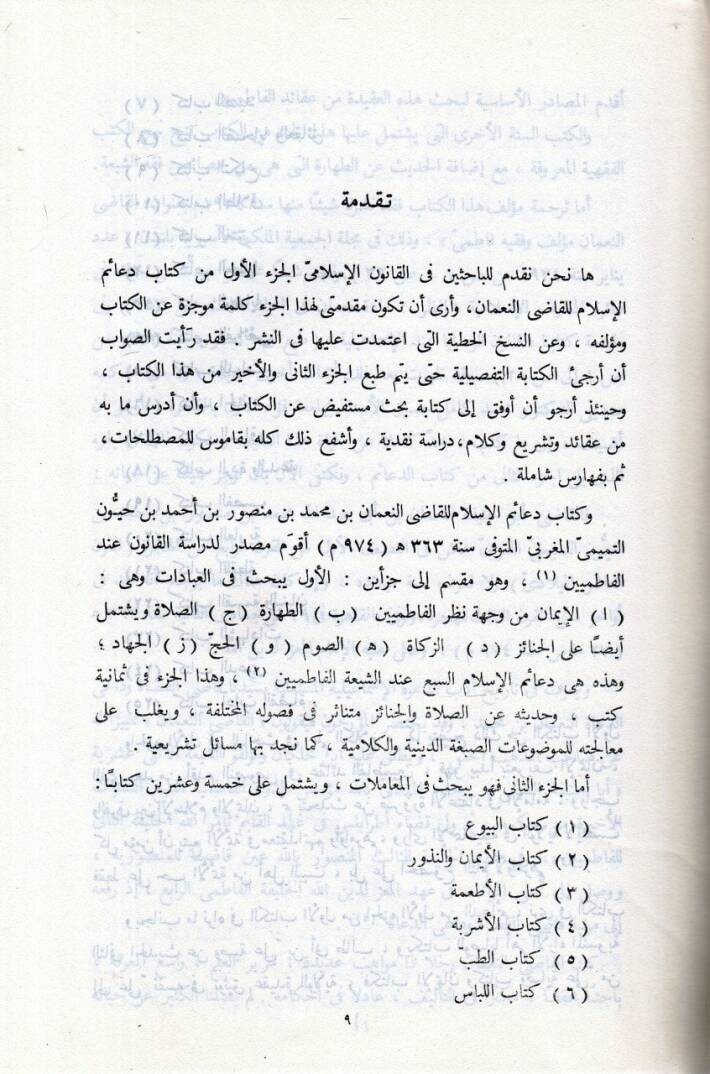 تـقـدمة
ها نحن نقدم للباحثين فى القانون الإسلامىّ الجزء الأول من كتاب دعائم
الإسلام للقاضى النعمان، وأرى أن تكون مقدمتى لهذا الجزء كلمة موجزة عن الكتاب
ومؤلفه ، وعن النسخ الخطية التى اعتمدت عليها فى النشر . فقد رأيت الصواب
أن أرجئ الكتابة التفصيلية حتى يتم طبع الجزء الثانى والأخير من هذا الكتاب ،
وحينئذ أرجو أن أوفق إلى كتابة بحث مستفيض عن الكتاب ، وأن أدرس ما به
من عقائد وتشريع وكلام، دراسة نقدية ، وأشفع ذلك كله بقاموس للمصطلحات،
ثم بفهارس شاملة .
وكتاب دعائم الإسلام للقاضى النعمان بن محمد بن منصور بن أحمد بن حيُّون
التميمىّ المغربىّ المتوفى سنة ٣٦٣ هـ ( ٩٧٤ م ) أقوَم مصدر لدراسة القانون عند
الفاطميين (١) ، وهو مقسم إلى جزأين : الأول يبحث فى العبادات وهى :
( ا ) الإيمان من وجهة نظر الفاطميين ( ب ) الطهارة ( ج ) الصلاة ويشتمل
أيضًا على الجنائز ( د ) الزكاة ( ه ) الصوم ( و ) الحج ( ز ) الجهاد ؛
وهذه هى دعائم الإسلام السبع عند الشيعة الفاطميين (٢) ، وهذا الجزء فى ثمانية
كتب ، وحديثه عن الصلاة والجنائز متناثر فى فصوله المختلفة ، ويغلب على
معالجته للموضوعات الصبغة الدينية والكلامية ، كما نجد بها مسائل تشريعية .
أما الجزء الثانى فهو يبحث فى المعاملات ، ويشتمل على خمسة وعشرين كتابًا :
( ١ ) كتاب البيوع
( ٢ ) كتاب الأيمان والنذور
( ٣ ) كتاب الأطعمة
( ٤ ) كتاب الأشربة
( ٥ ) كتاب الطب
( ٦ ) كتاب اللباس
٩